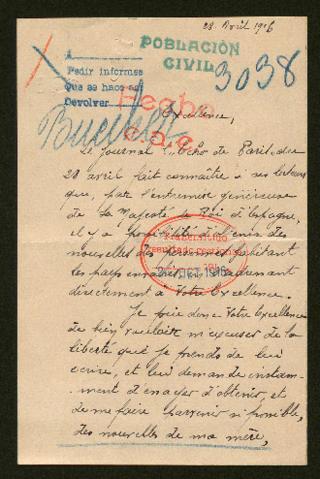 28 Avril 1916
POBLACIÓN
CIVIL
3038
A
Pedir informes
Que se hace en
Devolver
Hecho
Excellence,
Le Journal L'Echo de Paris du
28 avril fait connaître à ses lecteurs
que, par l'entremise généreuse
de Sa Majesté le Roi d'Espagne,
il y a possibilité d'obtenir des
nouvelles des personnes habitant
les pays envahis, en s'adressant
directement à Votre Excellence.
Transmitido
Resultado gestiones
OCT. 1916
Je prie donc Votre Excellence
de bien vouloir m'excuser de la
liberté que je prends de lui
écrire, et lui demande instam-
ment d'essayer d'obtenir, et
de me faire parvenir si possible,
des nouvelles de ma mère,